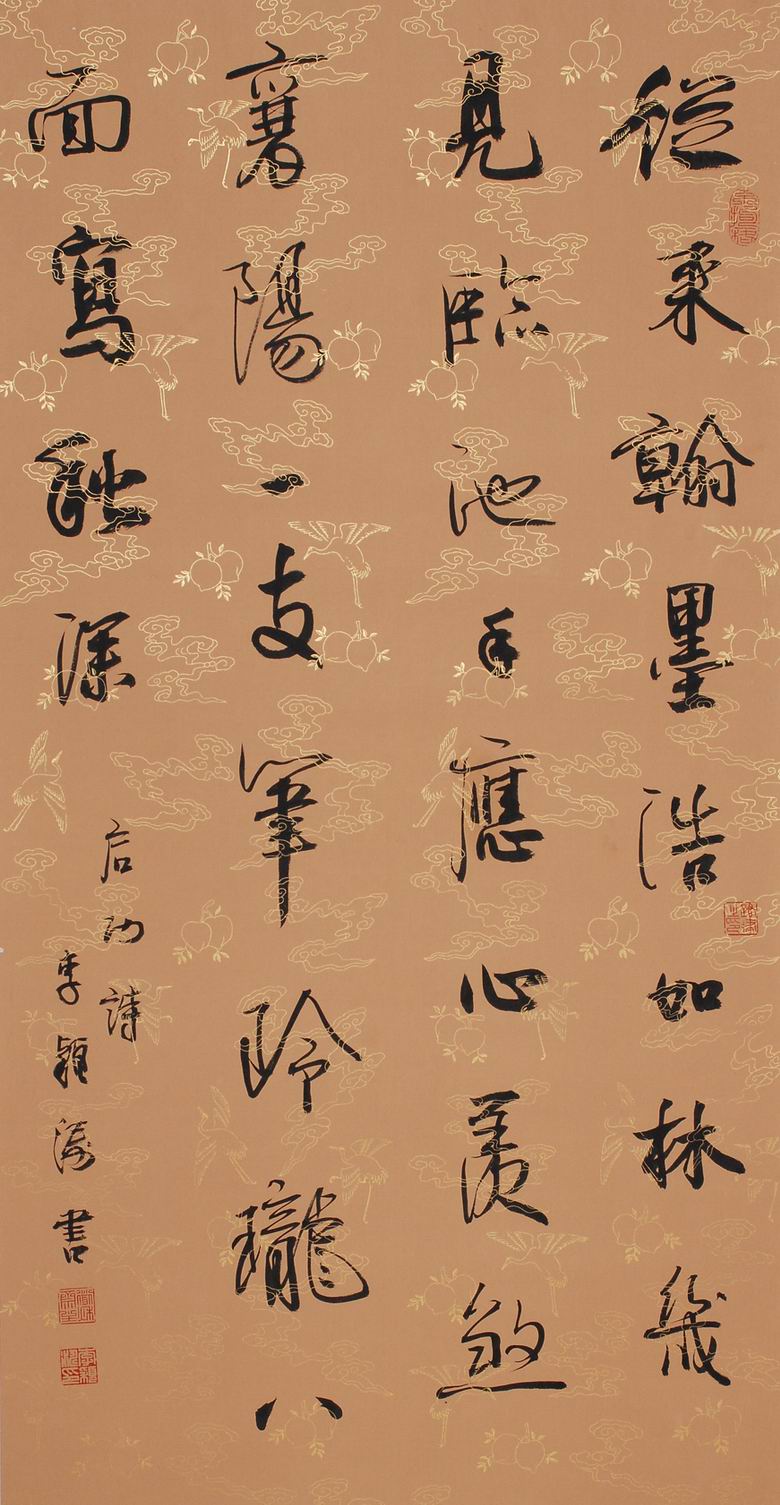 從來翰墨浩如林幾
見臨池手應心羨煞
襄陽一支筆玲瓏八
面寫秋深
启功詩
李穎濤書